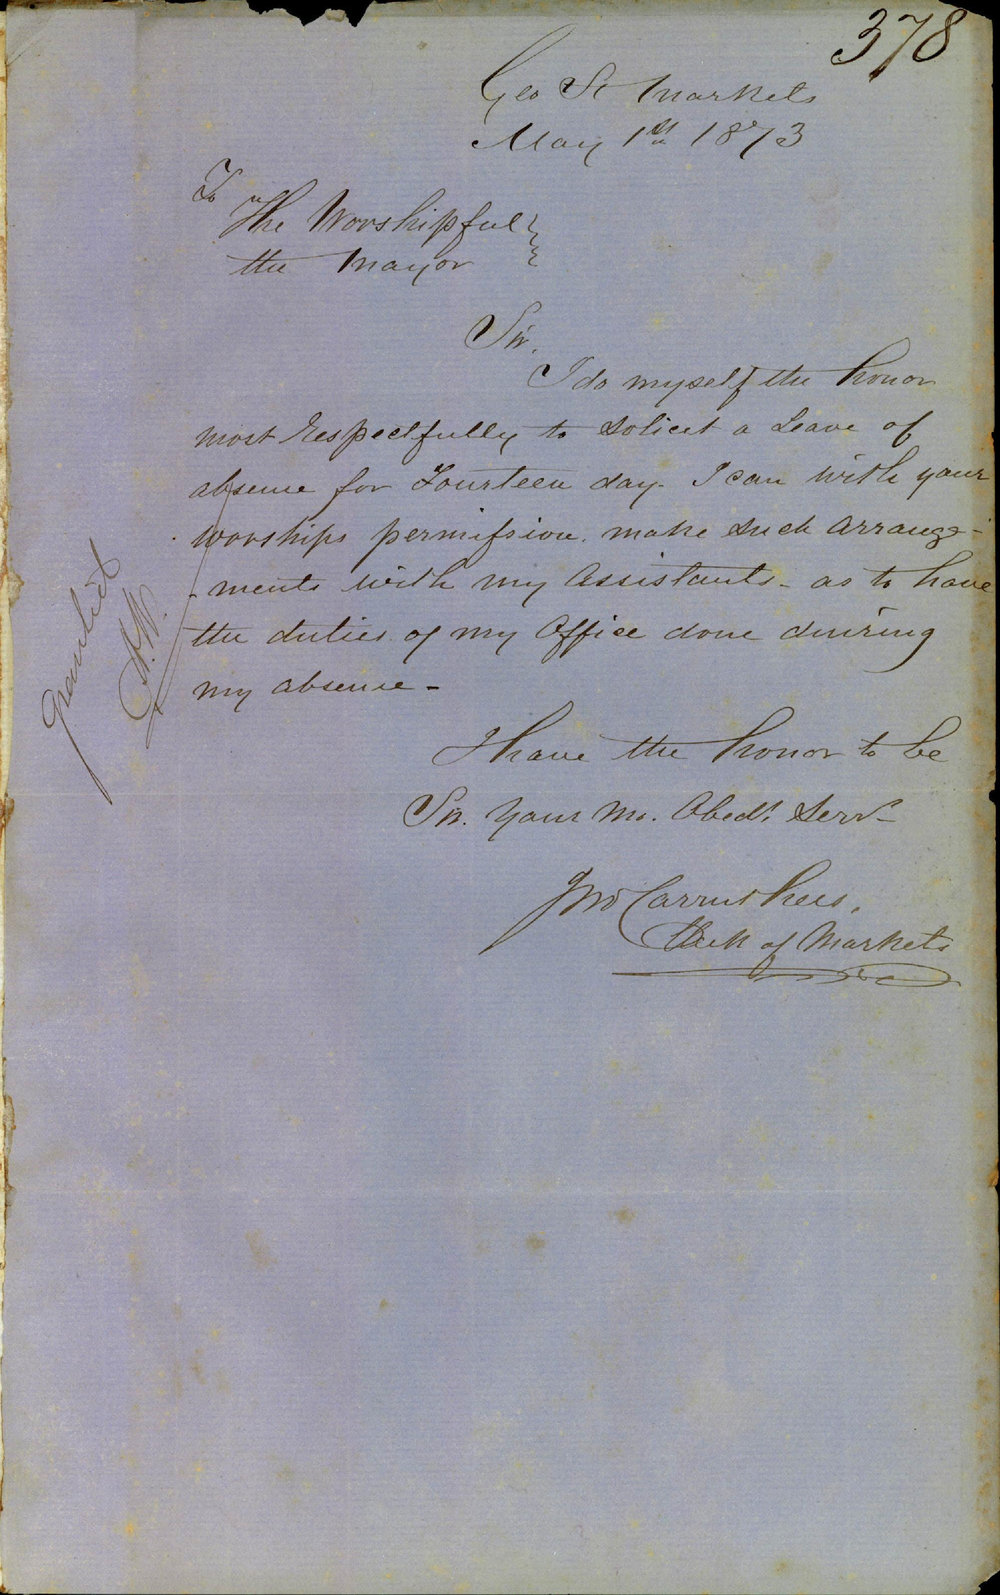 378
Geo St Markets
May 1st 1873
To
The Worshipful
the Mayor
Sir,
I do myself the honor
most respectfully to solicit a Leave of
absence for Fourteen day. I can with your
worships permission. make such arrange-
-ments with my Assistants - as to have
the duties of my Office done during
my absence -
I have the honor to be
Sir. Your Mo. Obedt. Servt
Jno Carruthers,
Clerk of Markets
Granted